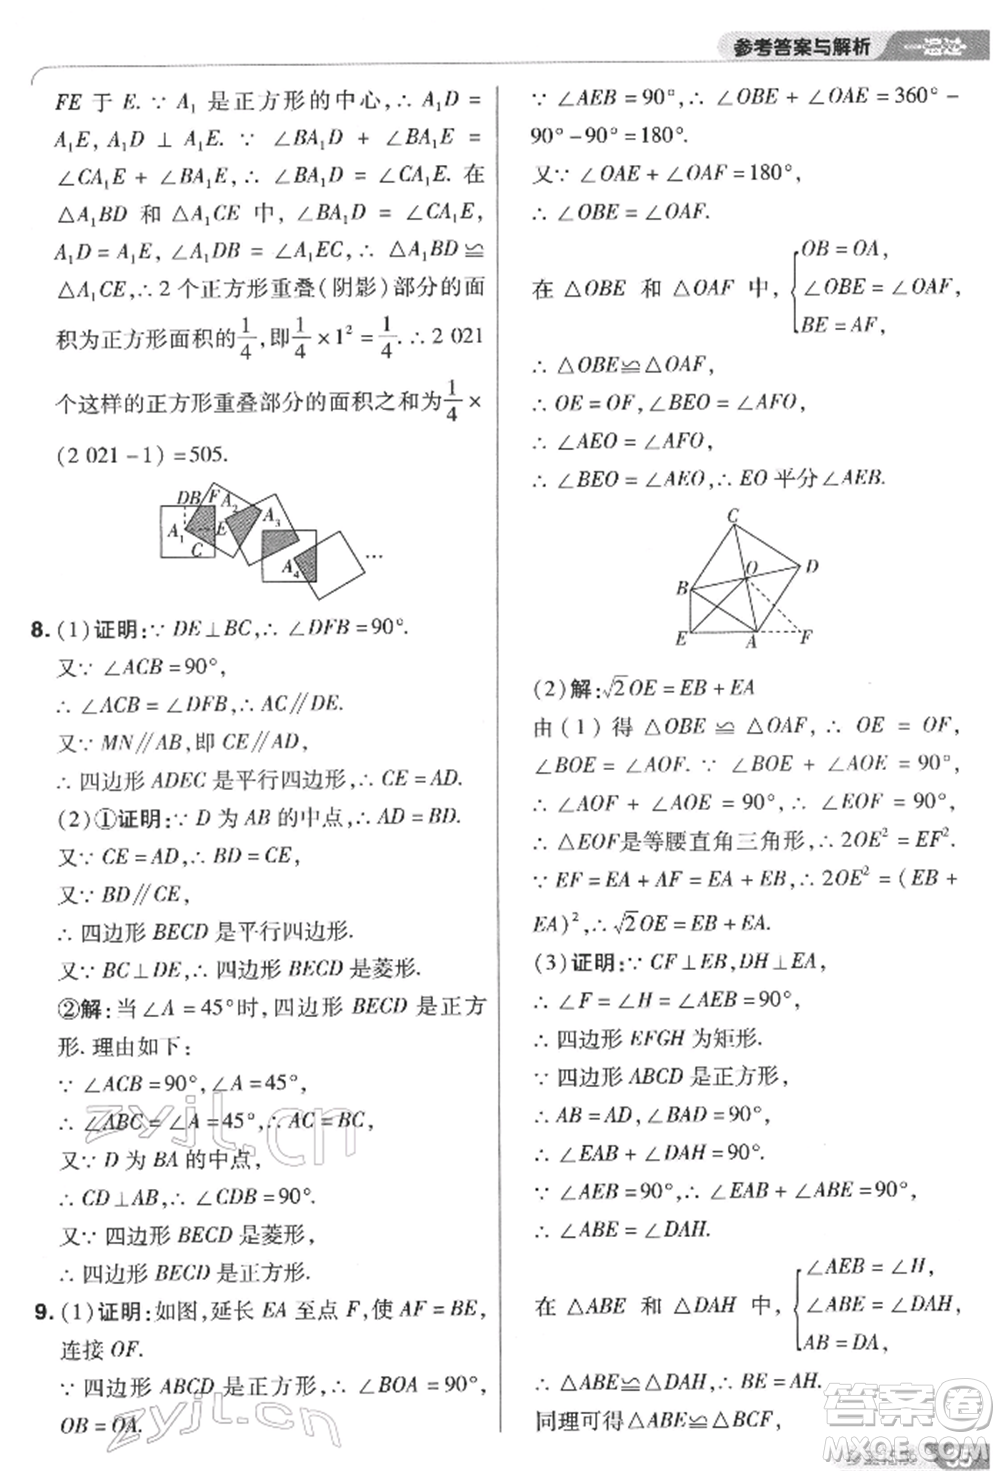 参考答案与解析
FE 于 E.∵ A₁ 是正方形的中心,∴ A₁D =
A₁E,A₁D ⊥ A₁E. ∵ ∠BA₁D + ∠BA₁E =
∠CA₁E + ∠BA₁E,∴ ∠BA₁D = ∠CA₁E. 在
△A₁BD 和 △A₁CE 中, ∠BA₁D = ∠CA₁E,
A₁D = A₁E,∠A₁DB = ∠A₁EC,∴ △A₁BD ≌
△A₁CE,∴ 2 个正方形重叠(阴影)部分的面
积为正方形面积的1/4,即1/4×1²=1/4.∴ 2 021
个这样的正方形重叠部分的面积之和为1/4×
(2 021-1)=505.
D B F A₂ A₁ E A₃ C A₄ …
8. (1)证明:∵ DE⊥BC,∴ ∠DFB=90°.
又∵ ∠ACB=90°,
∴ ∠ACB=∠DFB,∴ AC∥DE.
又∵ MN∥AB,即 CE∥AD,
∴ 四边形 ADEC 是平行四边形,∴ CE=AD.
(2)①证明:∵ D 为 AB 的中点,∴ AD=BD.
又∵ CE=AD,∴ BD=CE,
又∵ BD∥CE,
∴ 四边形 BECD 是平行四边形.
又∵ BC⊥DE,∴ 四边形 BECD 是菱形.
②解:当∠A=45°时,四边形 BECD 是正方
形.理由如下:
∵ ∠ACB=90°,∠A=45°,
∴ ∠ABC=∠A=45°,∴ AC=BC,
又∵ D 为 BA 的中点,
∴ CD⊥AB,∴ ∠CDB=90°.
又∵ 四边形 BECD 是菱形,
∴ 四边形 BECD 是正方形.
9. (1)证明:如图,延长 EA 至点 F,使 AF=BE,
连接 OF.
∵ 四边形 ABCD 是正方形,∴ ∠BOA=90°,
OB=OA.
∵ ∠AEB=90°,∴ ∠OBE+∠OAE=360°-
90°-90°=180°.
又∵ ∠OAE+∠OAF=180°,
∴ ∠OBE=∠OAF.
在 △OBE 和 △OAF 中,{OB=OA,
∠OBE=∠OAF,
BE=AF,
∴ △OBE≌△OAF,
∴ OE=OF,∠BEO=∠AFO,
∴ ∠AEO=∠AFO,
∴ ∠BEO=∠AEO,∴ EO 平分∠AEB.
C O D B E A F
(2)解:√2OE=EB+EA
由(1)得 △OBE≌△OAF,∴ OE=OF,
∠BOE=∠AOF. ∵ ∠BOE+∠AOE=90°,
∴ ∠AOF+∠AOE=90°,∴ ∠EOF=90°,
∴ △EOF是等腰直角三角形,∴ 2OE²=EF².
∵ EF=EA+AF=EA+EB,∴ 2OE²=(EB+
EA)²,∴ √2OE=EB+EA.
(3)证明:∵ CF⊥EB,DH⊥EA,
∴ ∠F=∠H=∠AEB=90°,
∴ 四边形 EFGH 为矩形.
∵ 四边形 ABCD 是正方形,
∴ AB=AD,∠BAD=90°,
∴ ∠EAB+∠DAH=90°.
∵ ∠AEB=90°,∴ ∠EAB+∠ABE=90°,
∴ ∠ABE=∠DAH.
在 △ABE 和 △DAH 中,{∠AEB=∠H,
∠ABE=∠DAH,
AB=DA,
∴ △ABE≌△DAH,∴ BE=AH.
同理可得△ABE≌△BCF,
zyjl.cn
zyjl.cn
答案圈